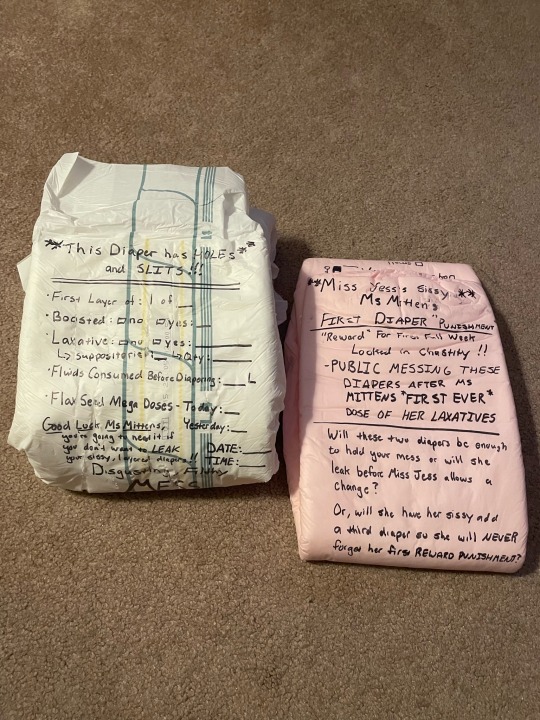 **This Diaper has HOLES**
and SLITS!!!
• First Layer of: 1 of __
• Boosted: □ no □ yes: __
• Laxative: □ no □ yes: ____
↳ suppositories: __ ↳ Qty: ____
• Fluids Consumed Before Diapering: ___ L
• Flax Seed Mega Doses - Today: __
Good Luck Ms Mittens, Yesterday: __
you're going to need it if
you don't want to LEAK DATE: ___
your sissy, layered diapers!! TIME: ___
Disgusting Filthy
MESS
**Miss Jess's Sissy **
Ms Mitten's
FIRST DIAPER "PUNISHMENT
"Reward" For First Full Week
Locked in Chastity !!
- PUBLIC MESSING THESE
DIAPERS AFTER MS
MITTENS *FIRST EVER*
DOSE OF HER LAXATIVES
Will these two diapers be enough
to hold your mess or will she
leak before Miss Jess allows a
change?
Or, will she have her sissy add
a third diaper so she will NEVER
forget her first REWARD PUNISHMENT?